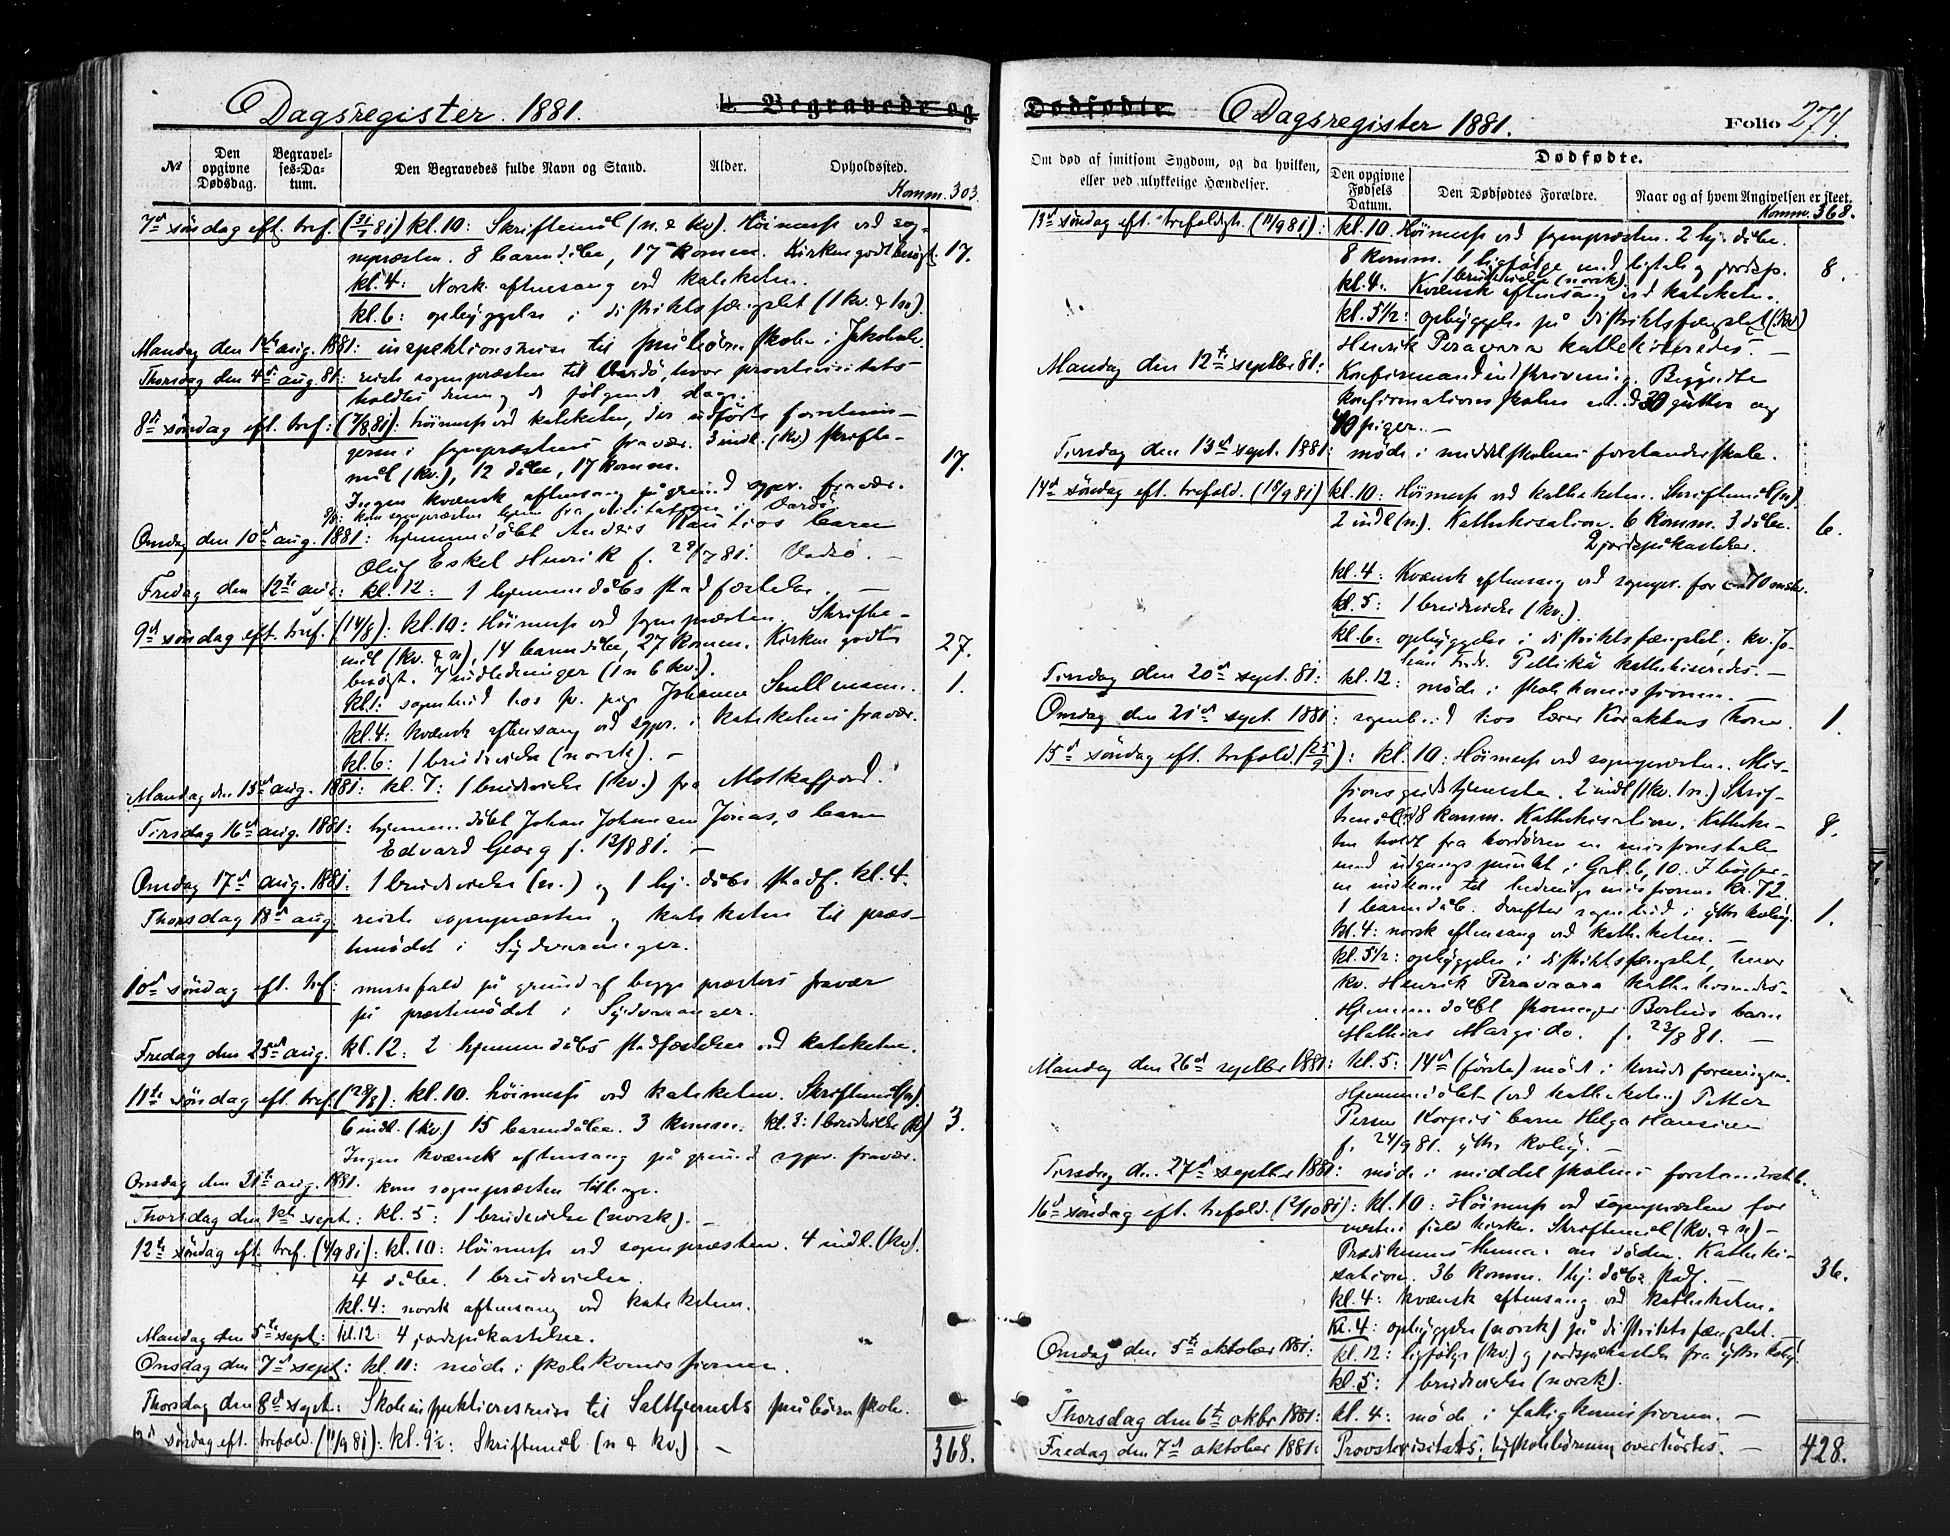 Dagsregister 1881. E. Begravede og
No
Den opgivne Dødsdag.
Begravelses-Datum.
Den Begravedes fulde Navn og Stand.
Alder.
Opholdssted.
Komm. 303
7d søndag eft. tref. (31/7 81) kl. 10: Skriftemål (n. & kv.) Höimesse ved sog-
nepræsten. 8 barnedåbe, 17 komm. Kirken godt besögt. 17.
kl. 4: Norsk aftensang ved kateketen.
kl. 6: opbyggelse i distriktsfængslet (1 kv. & 1 n.).
Mandag den 1ste aug. 1881: inspektionsreise til småbørnsskolen i Jakobselv.
Thorsdag den 4d aug. 81: reiste sognepræsten til Vardö, hvor provstevisitats
holdtes denne og de følgende dage.
8d søndag eft. tref. (7/8 81): höimesse ved kateketen, der udförte forretnin-
gerne i sognepræstens fravær. 3 indl. (kv.) Skrifte-
mål (kv.), 12 dåbe, 17 komm. 17.
Ingen kvænsk aftensang på grund sgpr. fravær.
9/8: kom sognepræsten hjem fra visitatsen i Vardö.
Onsdag den 10d aug. 1881: hjemmedöbt Anders Rautios barn
Oluf Eskel Henrik f. 29/7 81. Vadsö. —
Fredag den 12te aug: kl. 12: 1 hjemmedåbsstadfæstelse. —
9d søndag eft. tref. (14/8): kl. 10: Höimesse ved sognepræsten. Skrifte-
mål (kv. & n), 14 barnedåbe, 27 komm. Kirken godt 27.
besögt. 7 indledninger (1 n 6 kv.).
kl. 1: sognebud hos p. pige Johanna 1.
kl. 4: kvænsk aftensang ved sgpr. i kateketens fravær.
kl. 6: 1 brudevielse (norsk). —
Mandag den 15d aug. 1881: kl. 7: 1 brudevielse (kv.) fra Mottafjord.
Tirsdag 16d aug. 1881: hjemmedöbt Johan Johnsen Jonas,s barn
Edvard Georg f. 12/8 81. —
Onsdag 17d aug. 1881: 1 brudevielse (n.) og 1 hj. dåbs stadf. kl. 4.
Thorsdag 18d aug: reiste sognepræsten og kateketen til præs-
temødet i Sydvaranger.
10d søndag eft. tref: messefald på grund af begge præsters fravær
på præstemødet i Sydvaranger.
Fredag den 25d aug. kl. 12: 2 hjemmedåbsstadfæstelser ved kateketen.
11te søndag eft. tref. (28/8): kl. 10. höimesse ved kateketen. Skriftemål (n).
6 indl. (kv.) 15 barnedåbe. 3 komm. kl. 3: 1 brudevielse (k) 3.
Ingen kvænsk aftensang på grund sgpr. fravær.
Onsdag den 31te aug. 1881. kom sognepræsten tilbage.
Thorsdag den 1ste sept: kl. 5: 1 brudevielse (norsk). —
12te søndag eft. tref. (4/9 81): kl. 10: Höimesse ved sognepræsten. 4 indl. (kv).
4 dåbe. 1 brudevielse.
kl. 4: norsk aftensang ved kateketen.
Mandag den 5te sept: kl. 12: 4 jordspåkastelser.
Onsdag den 7d sept: kl. 11: möde i skolekommissionen.
Thorsdag den 8d sept: Skoleinspektionsreise til Salttjernets småbørnsskole.
13d søndag eft. trefold. (11/9 81): kl. 9½: Skriftemål (n & kv.) —
368.
Dødfødte Dagsregister 1881. Folio 274.
Om død af smitsom Sygdom, og da hvilken, eller ved ulykkelige Hændelser.
Dødfødte.
Den opgivne Fødsels Datum.
Den Dødfødtes Forældre.
Naar og af hvem Angivelsen er skeet.
Komm. 368.
13d søndag eft. trefoldigh. (11/9 81): kl. 10. Höimesse ved sognepræsten. 2 hj. dåbe.
8 komm. 1 ligfølge med ligtale og jordsp. 8.
1 brudevielse (norsk)
kl. 4. Kvænsk aftensang ved kateketen.
kl. 5½: opbyggelse på distriktsfængslet (kv)
Henrik Peravara kathekiseredes. —
Mandag den 12te septbr 81: Konfirmandindskrivning. Begyndte
konfirmationsskolen med 30 gutter og
40 piger. —
Tirsdag den 13d sept. 1881: möde i middelskolens forstanderskab.
14d søndag eft. trefold. (18/9 81) kl. 10: Höimesse ved katheketen. Skriftemål (n).
2 indl (n.). Kathekisation. 6 komm. 3 dåbe. 6.
2 jordspåkastelser.
kl. 4: Kvænsk aftensang ved sognepr. for
kl. 5: 1 brudevielse (kv.).
kl. 6: opbyggelse i distriktsfængslet, kv. Jo-
han Fredr. Pellikä kathekiseredes. —
Tirsdag den 20d sept. 81: kl. 12: möde i skolekommissionen. —
Onsdag den 21d sept. 1881: sognebud hos Lærer 1.
15d søndag eft. trefold. (25/9): kl. 10: Höimesse ved sognepræsten. Mis-
sionsgudstjeneste. 2 indl (1 kv. 1 n.) Skrif-
temål 8 komm. Kathekisation. Katheke- 8.
ten holdt fra kordören en missionstale
med udgangspunkt i Gal. 6, 10. I bösser-
ne indkom til hedningemissionen kr. 72.
1 barnedåb. Derefter sognebud i ytre kolvig. 1.
kl. 4: norsk aftensang ved katheketen. —
kl. 5½: opbyggelse i distriktsfængslet, hvor
kv. Henrik Peravaara kathekiseredes.
Hjemmedöbt skomager Borlins barn
Mathias Margido. f. 23/8 81. —
Mandag den 26d septbr 1881: kl. 5: 14d (förste) möde i kvindeforeningen.
Hjemmedöbt (ved katheketen) Petter
Persen Korpis barn Helga Hansine
f. 24/9 81. ytre kolvig. —
Tirsdag den 27d septbr 1881: möde i middelskolens forstanderskab.
16d søndag eft. trefold. (2/10 81): kl. 10: Höimesse ved sognepræsten for
næsten fuld kirke. Skriftemål (kv. & n) —
Prædikenens thema: om döden. Katheki-
sation. 36 komm. 1 hj. dåbs stadf. — 36.
kl. 4: kvænsk aftensang ved katheketen.
kl. 4: opbyggelse (norsk) på distriktsfængslet.
Onsdag den 5te oktober 1881: kl. 12: ligfølge (kv.) og jordspåkastelse fra ytre kolvig.
kl. 5: 1 brudevielse (norsk).
Thorsdag den 6te oktbr 1881: kl. 4: möde i fattigkommissionen. —
Fredag den 7d oktober 1881: Provstevisitats; byskolebørnene overhörtes. —
428.